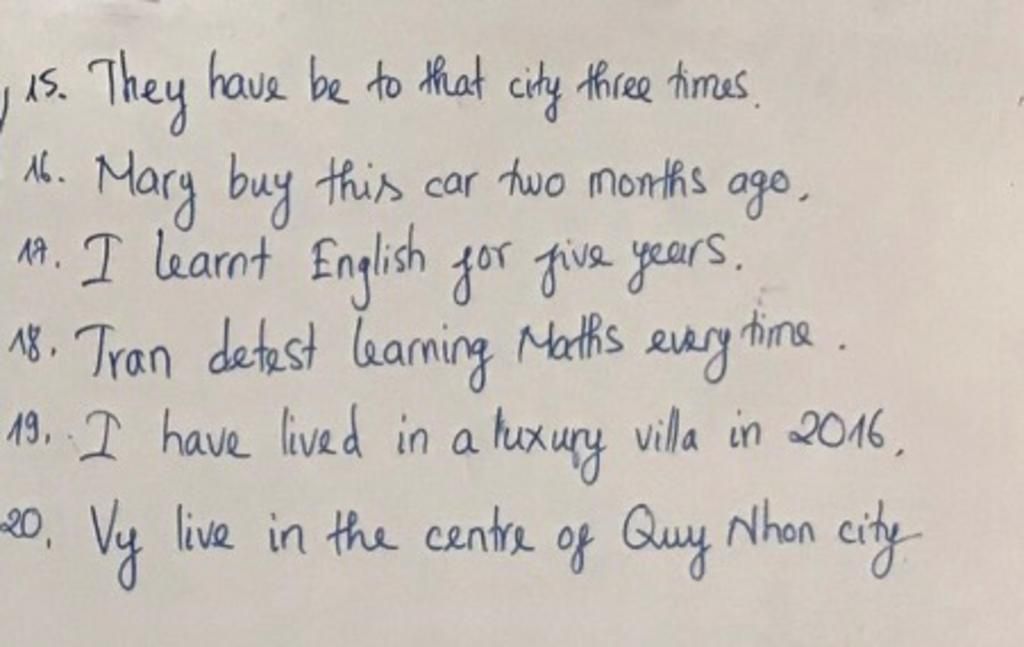 15. They have be to that city three times.
16. Mary buy this car two months ago.
17. I learnt English for five years.
18. Tran detest learning Maths every time.
19. I have lived in a luxury villa in 2016.
20. Vy live in the centre of Quy Nhon city